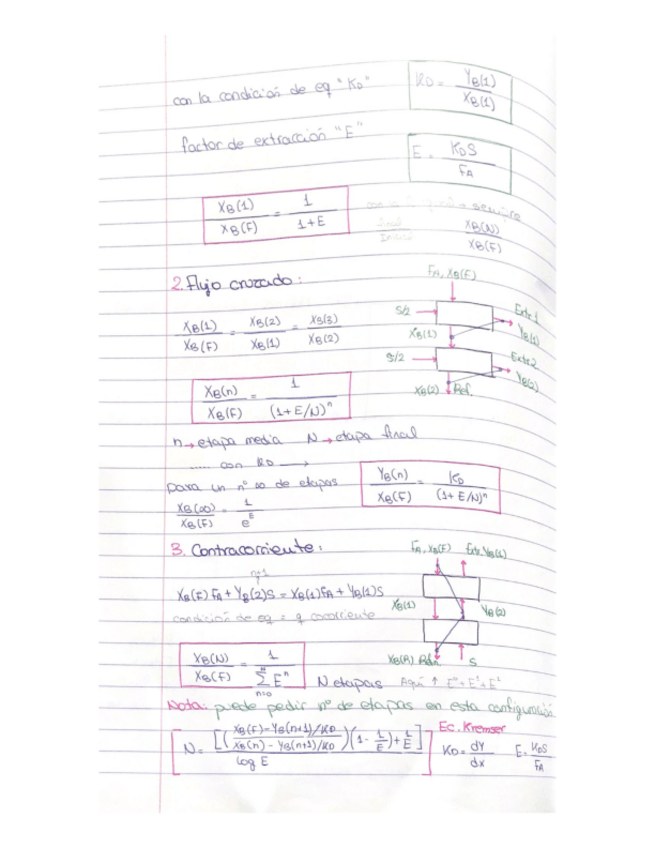 con la condición de eq "KD"
KD = YB(1) / XB(1)
factor de extracción "E"
E = KDS / FA
XB(1) / XB(F) = 1 / 1+E
siempre
XB(N) / XB(F)
2. Flujo cruzado:
FA, XB(F)
S/2
Extr1
YB(1)
XB(1)
XB(1) / XB(F) = XB(2) / XB(1) = XB(3) / XB(2)
S/2
Extr2
YB(2)
XB(2) Ref.
XB(n) / XB(F) = 1 / (1+E/N)^n
n → etapa media N → etapa final
..... con KD →
YB(n) / XB(F) = KD / (1+E/N)^n
para un nº ∞ de etapas
XB(∞) / XB(F) = 1 / e^E
3. Contracorriente:
FA, XB(F) Extr, YB(1)
n=1
XB(F) FA + YB(2)S = XB(1)FA + YB(1)S
XB(1)
YB(2)
condición de eq = q cocorriente
XB(N) / XB(F) = 1 / ∑ n=0 E^n
S
N etapas Aquí ↑ E⁰+E¹+E²
Nota: puede pedir nº de etapas en esta configuración
Ec. Kremser
N = [(XB(F) - YB(n+1)/KD / XB(n) - YB(n+1)/KD)(1 - 1/E) + 1/E] / log E
KD = dY / dx E = KDS / FA